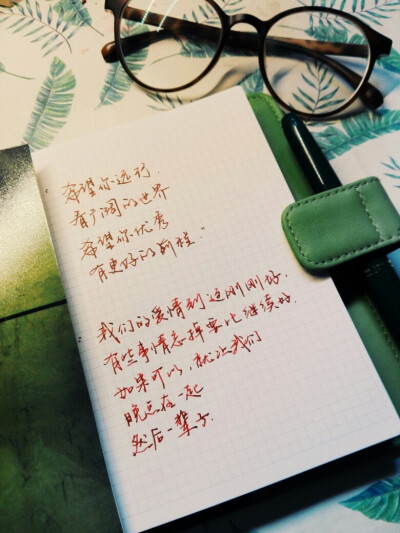 希望你远行.
看广阔的世界
希望你优秀
有更好的前程."
我们的爱情到这刚刚好,
有些事情忘掉要比继续好.
如果可以,就让我们
晚点在一起
然后一辈子.